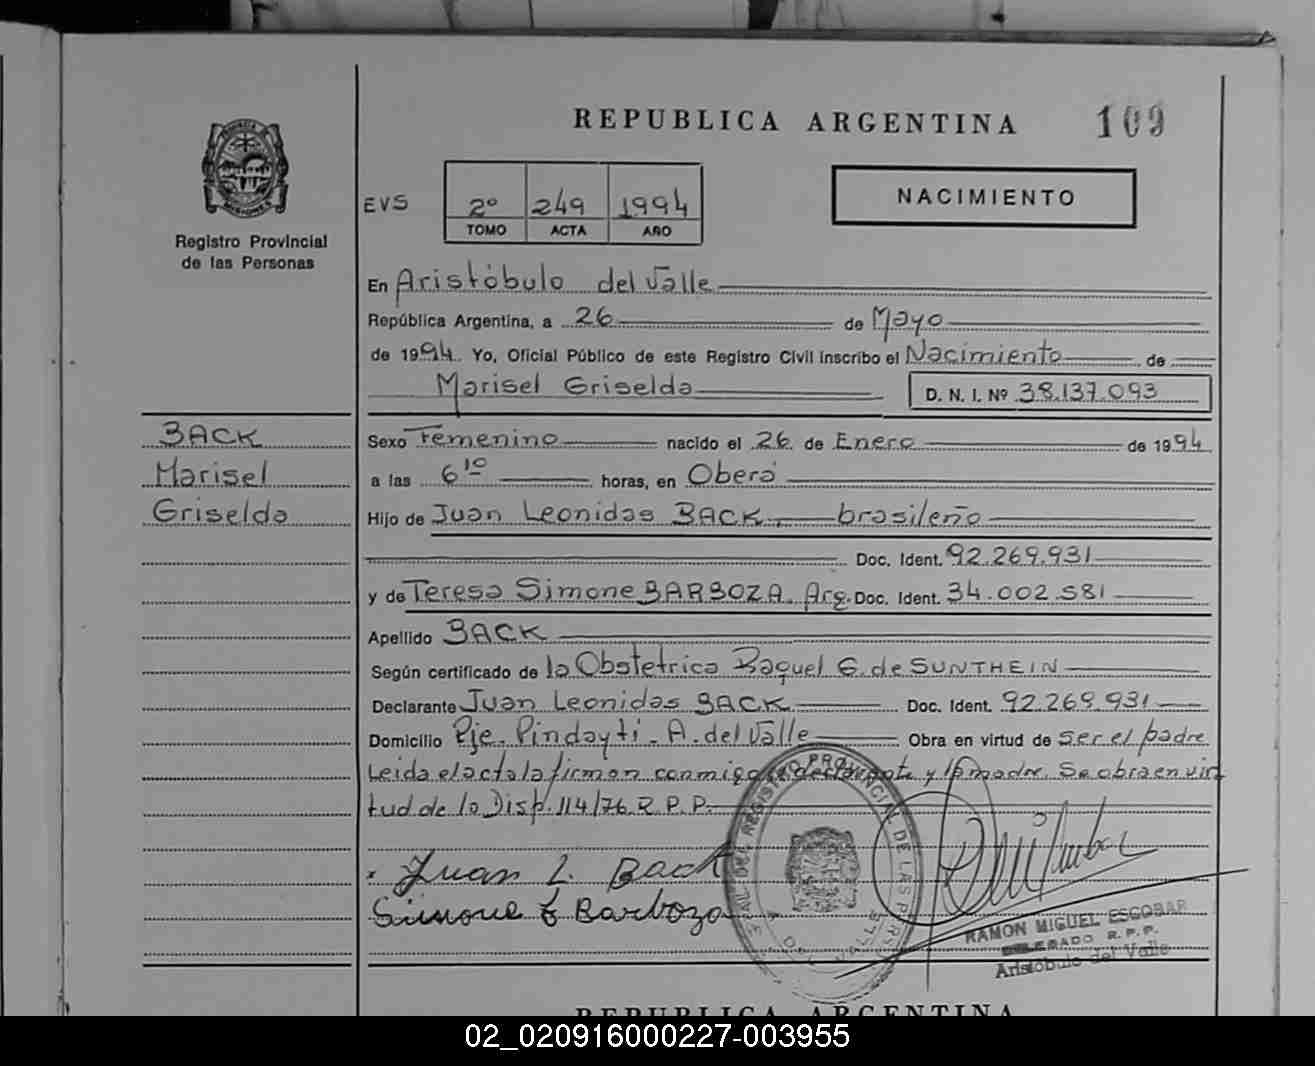 REPUBLICA ARGENTINA
109
Registro Provincial
de las Personas
EVS
2º 249 1994
TOMO ACTA AÑO
NACIMIENTO
En Aristóbulo del Valle
República Argentina, a 26 de Mayo
de 1994. Yo, Oficial Público de este Registro Civil inscribo el Nacimiento de
Marisel Griselda D. N. I. Nº 38.137.093
BACK
Marisel
Griselda
Sexo Femenino nacido el 26 de Enero de 1994
a las 6 10 horas, en Oberá
Hijo de Juan Leonidas BACK, brasileño
Doc. Ident. 92.269.931
y de Teresa Simone BARBOZA. Arg. Doc. Ident. 34.002.581
Apellido BACK
Según certificado de la Obstetrica Raquel G. de SUNTHEIN
Declarante Juan Leonidas BACK Doc. Ident. 92.269.931
Domicilio Pje. Pindaytí - A. del Valle Obra en virtud de ser el padre
Leida el acta la firman conmigo el declarante y la madre. Se obra en vir
tud de la Disp. 114/76. R.P.P.
Juan L. Back
Simone T Barboza
RAMON MIGUEL ESCOBAR
DELEGADO R. P. P.
Aristóbulo del Valle
REPUBLICA ARGENTINA
02_020916000227-003955